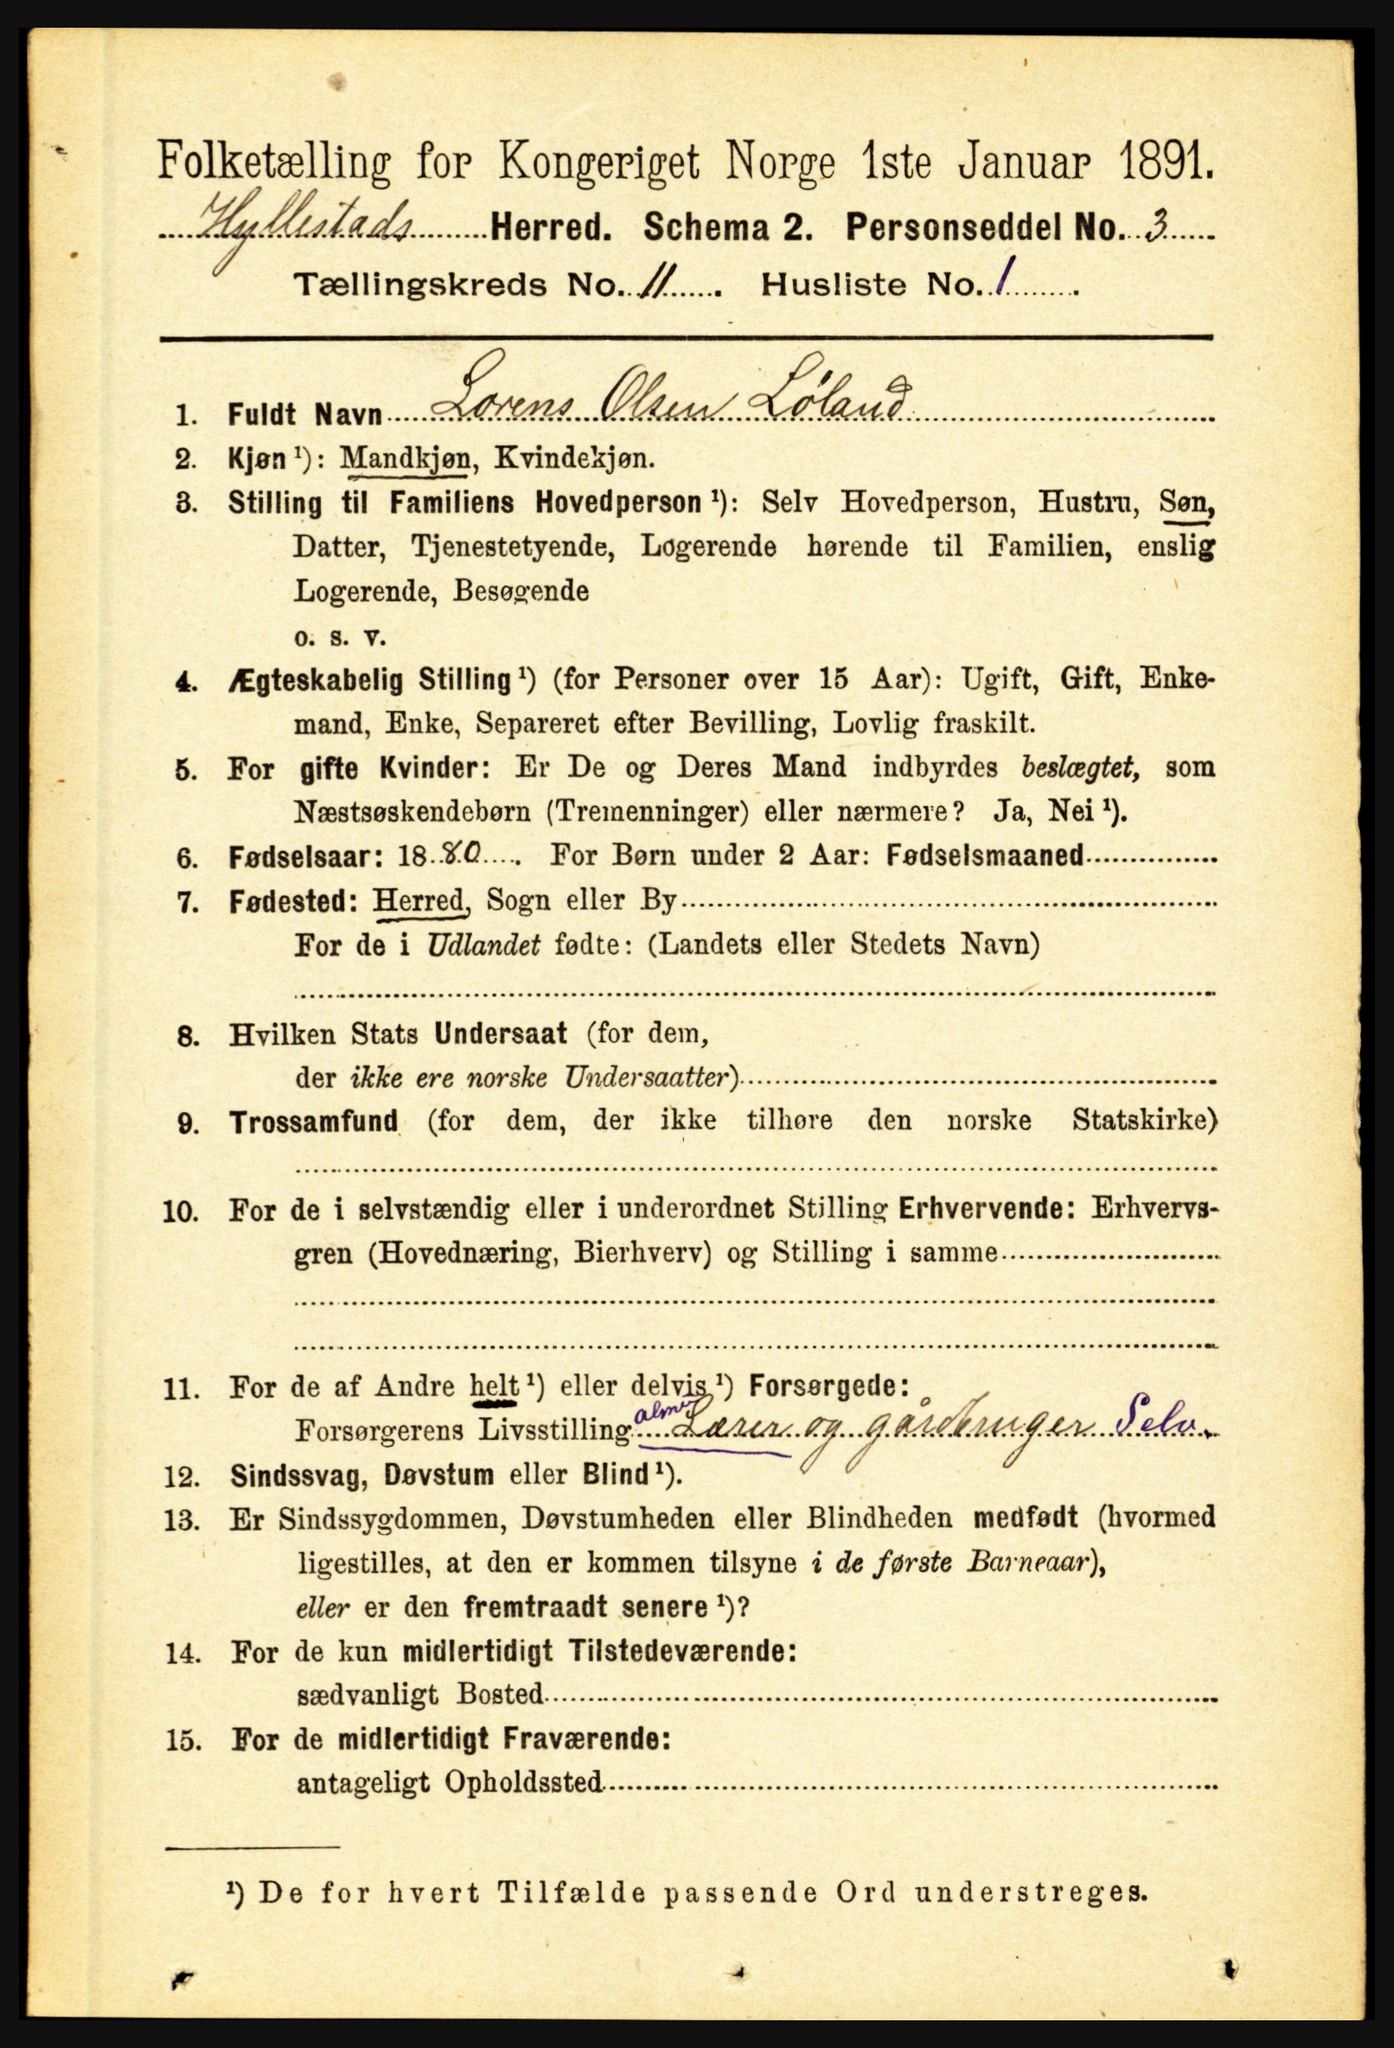 Folketælling for Kongeriget Norge 1ste Januar 1891.
Hyllestads Herred. Schema 2. Personseddel No. 3
Tællingskreds No. 11. Husliste No. 1.
1. Fuldt Navn Lorens Olsen Løland
2. Kjøn ¹): Mandkjøn, Kvindekjøn.
3. Stilling til Familiens Hovedperson ¹): Selv Hovedperson, Hustru, Søn,
Datter, Tjenestetyende, Logerende hørende til Familien, enslig
Logerende, Besøgende
o. s. v.
4. Ægteskabelig Stilling ¹) (for Personer over 15 Aar): Ugift, Gift, Enke-
mand, Enke, Separeret efter Bevilling, Lovlig fraskilt.
5. For gifte Kvinder: Er De og Deres Mand indbyrdes beslægtet, som
Næstsøskendebørn (Tremenninger) eller nærmere? Ja, Nei ¹).
6. Fødselsaar: 1880. For Børn under 2 Aar: Fødselsmaaned
7. Fødested: Herred, Sogn eller By
For de i Udlandet fødte: (Landets eller Stedets Navn)
8. Hvilken Stats Undersaat (for dem,
der ikke ere norske Undersaatter)
9. Trossamfund (for dem, der ikke tilhøre den norske Statskirke)
10. For de i selvstændig eller i underordnet Stilling Erhvervende: Erhvervs-
gren (Hovednæring, Bierhverv) og Stilling i samme
11. For de af Andre helt ¹) eller delvis ¹) Forsørgede:
Forsørgerens Livsstilling alm. Lærer og gårdbruger Selv.
12. Sindssvag, Døvstum eller Blind ¹).
13. Er Sindssygdommen, Døvstumheden eller Blindheden medfødt (hvormed
ligestilles, at den er kommen tilsyne i de første Barneaar),
eller er den fremtraadt senere ¹)?
14. For de kun midlertidigt Tilstedeværende:
sædvanligt Bosted
15. For de midlertidigt Fraværende:
antageligt Opholdssted
¹) De for hvert Tilfælde passende Ord understreges.